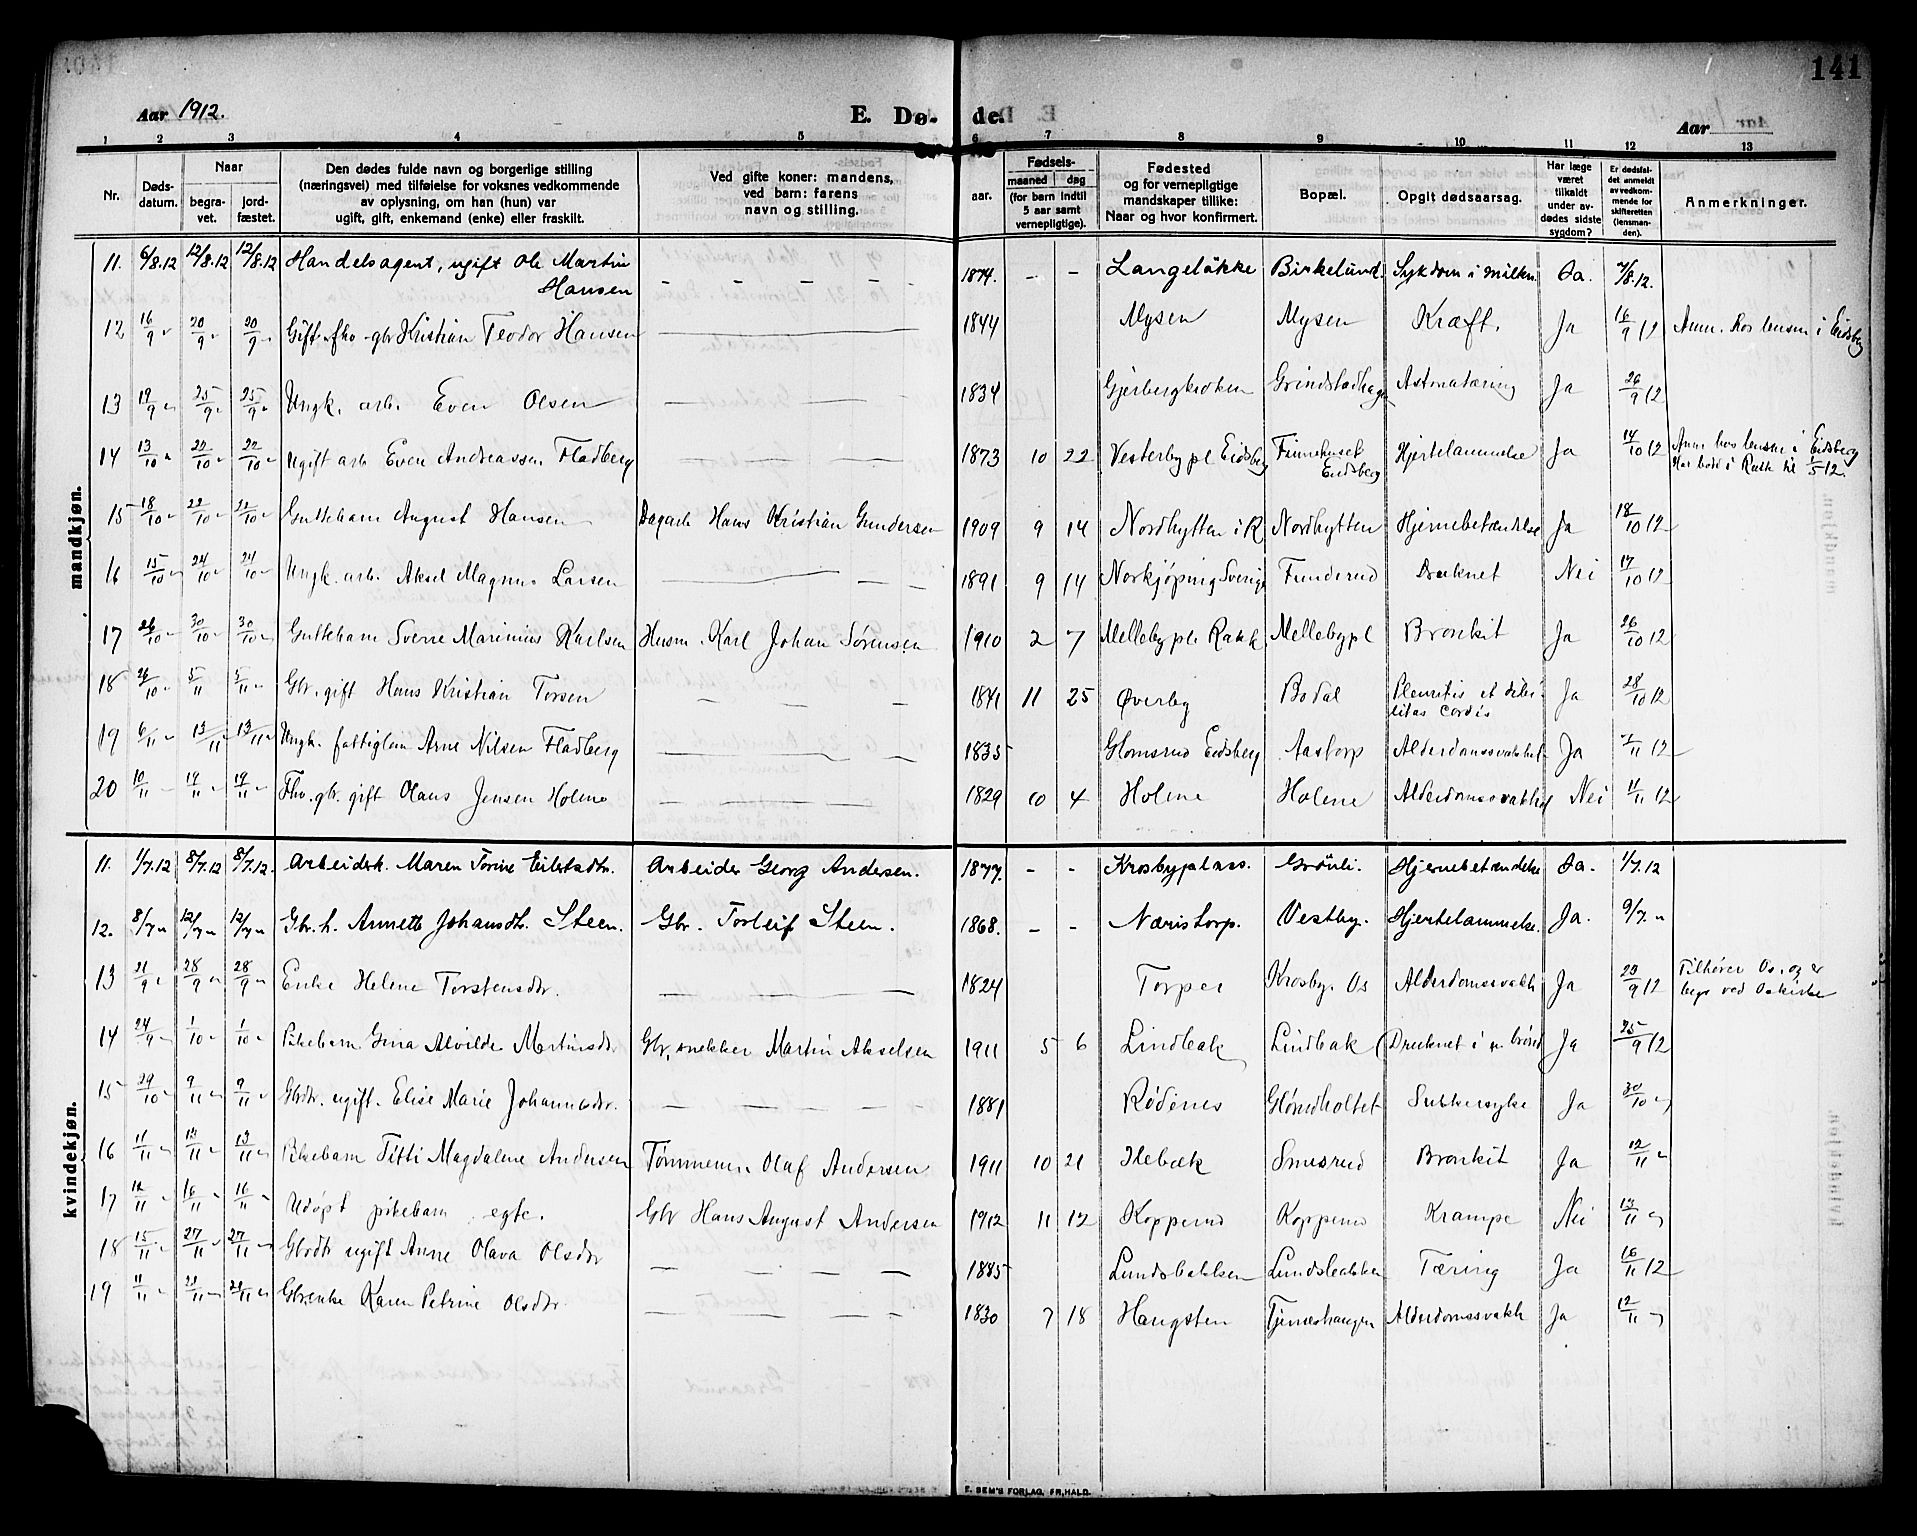 141
Aar 1912.
E. Dø- de.
Aar
1 2 3 4 5 6 7 8 9 10 11 12 13
Nr. Døds-datum. Naar begra-vet. jord-fæstet. Den dødes fulde navn og borgerlige stilling (næringsvei) med tilføielse for voksnes vedkommende av oplysning, om han (hun) var ugift, gift, enkemand (enke) eller fraskilt. Ved gifte koner: mandens, ved barn: farens navn og stilling. Fødsels- aar. maaned dag (for barn indtil 5 aar samt vernepligtige). Fødested og for vernepligtige mandskaper tillike: Naar og hvor konfirmert. Bopæl. Opgit dødsaarsag. Har læge været tilkaldt under av-dødes sidste sygdom? Er dødsfal-det anmeldt av vedkom-mende for skifteretten (lensman-den). Anmerkninger.
mandkjøn.
11. 6/8.12 12/8.12 12/8.12 Handelsagent, ugift Ole Martin Hansen - - - - - 1874. - - Langeløkke Birkelund. Sykdom i milten Ja. 7/8.12.
12 16/9 " 20/9 " 20/9 " Gift fho - gbr Kristian Teodor Hansen 1844 Mysen Mysen Kræft. Ja 16/9 12 Anm. hos lensm i Eidsberg
13 19/9 " 25/9 " 25/9 " Ungk. arb. Even Olsen 1834 Gjerbergkroken Grindstadhagen Astmatæring Ja 26/9 12
14 13/10 " 22/10 " 22/10 " Ugift arb Even Andreassen Fladberg 1873 10 22 Vesterby pl Eidsberg Finnehuset Eidsberg Hjertelammelse Ja 14/10 12 Anm hos lensm i Eidsberg Har bodd i Rakk til 1/5 12.
15 18/10 " 22/10 " 22/10 " Guttebarn August Hansen Dagarb Hans Kristian Gundersen 1909 9 14 Nordhytten i R Nordhytten Hjernebetændelse Ja 18/10 12
16 15/10 " 24/10 " 24/10 " Ungk. arb. Aksel Magnus Larsen 1891 9 14 Norkjøping Sverige Funderud Druknet Nei 17/10 12
17 26/10 " 30/10 " 30/10 " Guttebarn Sverre Marinius Karlsen Husm. Karl Johan Sørensen 1910 2 7 Melleby pl. Rakk. Mellebypl Bronkit Ja 26/10 12
18 26/10 " 5/11 " 5/11 " Gbr. gift Hans Kristian Torsen - - - 1841 11 25 Øverby Bodal Pleuritis et debilitas cordis Ja 28/10 12
19 6/11 " 13/11 " 13/11 " Ungk. fattiglem Arne Nilsen Fladberg 1835 Glomsrud Eidsberg Aastorp Alderdomssvakhet Ja 7/11 12
20 10/11 " 19/11 " 19/11 " Fho. gbr. gift Olaus Jensen Holene 1829 10 4 Holene Holene Alderdomssvakhet Nei 11/11 12
kvindekjøn.
11. 1/7.12 8/7.12 8/7.12. Arbeiderk. Maren Torine Eilertsdtr. Arbeider Georg Andersen. 1877. - - Krosbyplass. Grønli. Hjernebetændelse Ja. 1/7.12
12. 8/7 " 12/7 " 12/7 " Gbr. h. Annette Johansdtr. Steen. Gbr. Torleif Steen. 1868. - - Næristorp. Vestby. Hjertelammelse. Ja. 9/7. "
13 21/9 " 28/9 " 28/9 " Enke Helene Torstensdtr. 1824 Torper Krosby. Os Alderdomssvakh Ja 23/9 12 Tilhører Os. og er begr ved Os kirke
14 24/9 " 1/10 " 1/10 " Pikebarn Gina Alvilde Martinsdtr Gbr, snekker Martin Akselsen 1911 5 6 Lindbak Lindbak Druknet i en brønd Ja 25/9 12
15 29/10 " 9/11 " 9/11 " Gbdtr. ugift. Elise Marie Johannesdtr. 1881 Rødenes Glømdholtet Sukkersyke Ja 30/10 "
16 11/11 " 13/11 " 13/11 " Pikebarn Titti Magdalene Andersen Tømmerm. Olaf Andersen 1911 10 21 Hebæk Smesrud Bronkit Ja 12/11 "
17 12/11 16/11 " 16/11 " Udøpt pikebarn egte. Gbr Hans August Andersen 1912 11 12 Kopperud Kopperud Krampe Nei 13/11 "
18 15/11 " 27/11 " 27/11 " Gbrdtr ugift Anne Olava Olsdtr - - - - 1885 Lundsbakken Lundsbakken Tæring Ja 16/11 12
19 11/11 " 23/11 " 23/11 " Gbr.enke Karen Petrine Olsdtr. 1830 7 18 Haugsten Tjernshaugen Alderdomssvakh Ja 12/11 "
E. SEM'S FORLAG, FR.HALD.